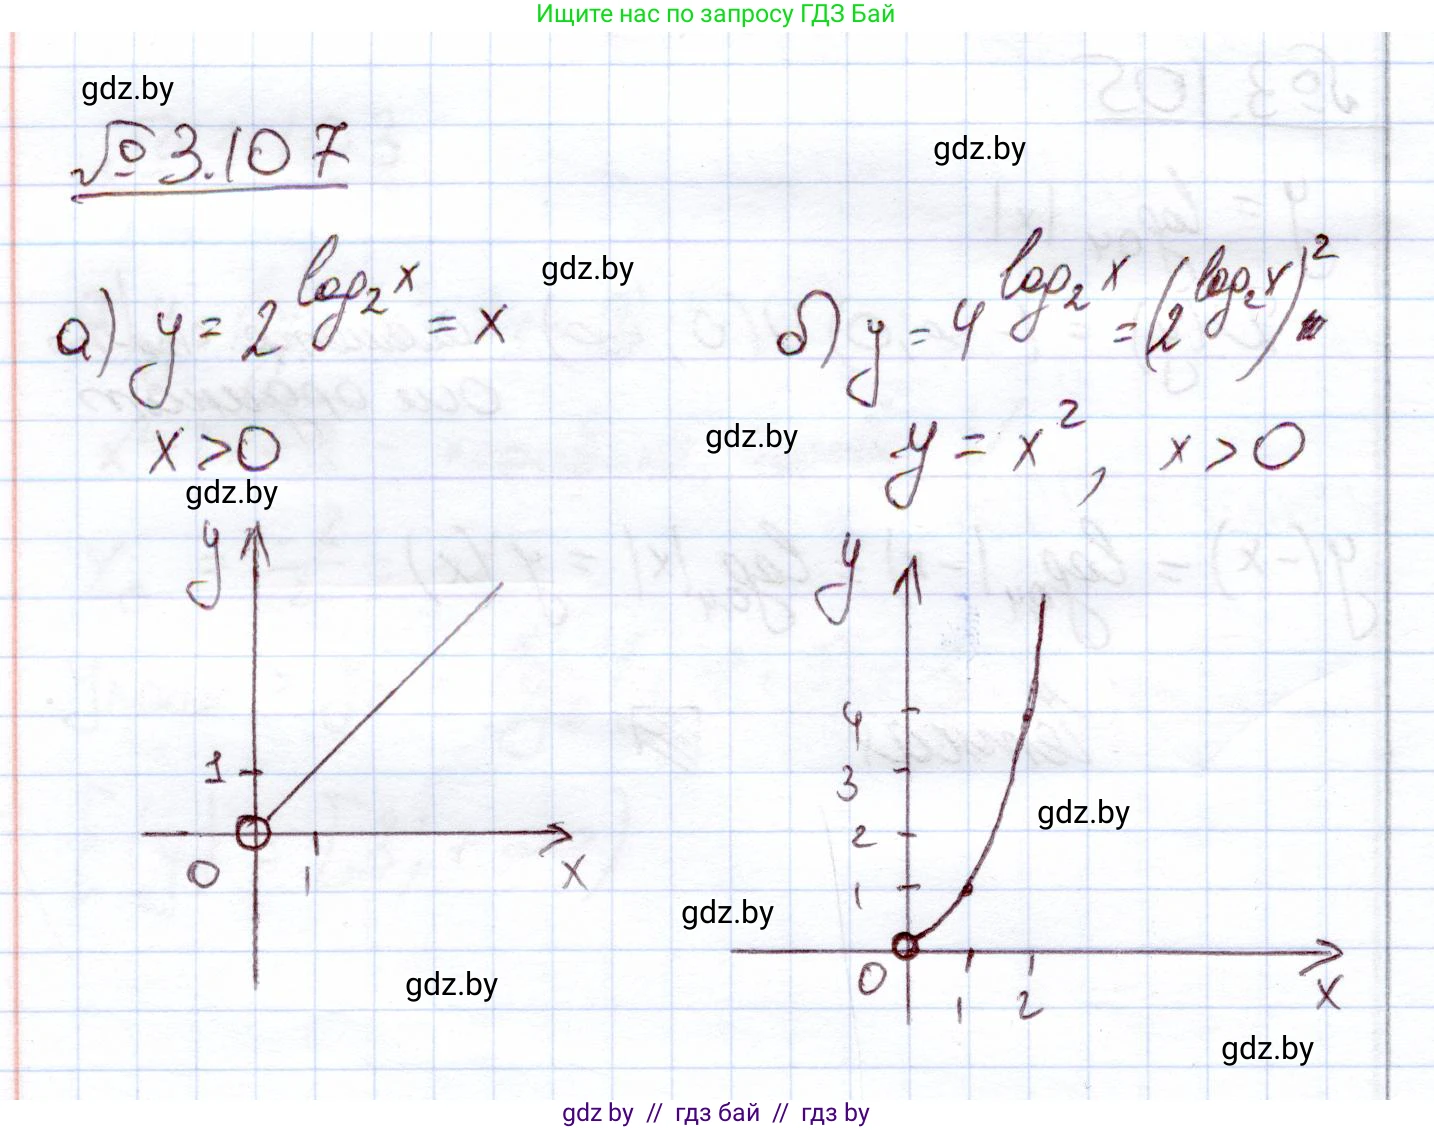 Ищите нас по запросу ГДЗ Бай
gdz.by
№ 3.107
gdz.by
а) y = 2^{log_2 x} = x
gdz.by
x > 0
gdz.by
y
1
0
1
x
gdz.by
б) y = 4^{log_2 x} = (2^{log_2 x})^2
gdz.by
y = x^2, x > 0
y
4
3
2
1
0
1
2
x
gdz.by
gdz.by
gdz.by
gdz by // гдз бай // гдз by